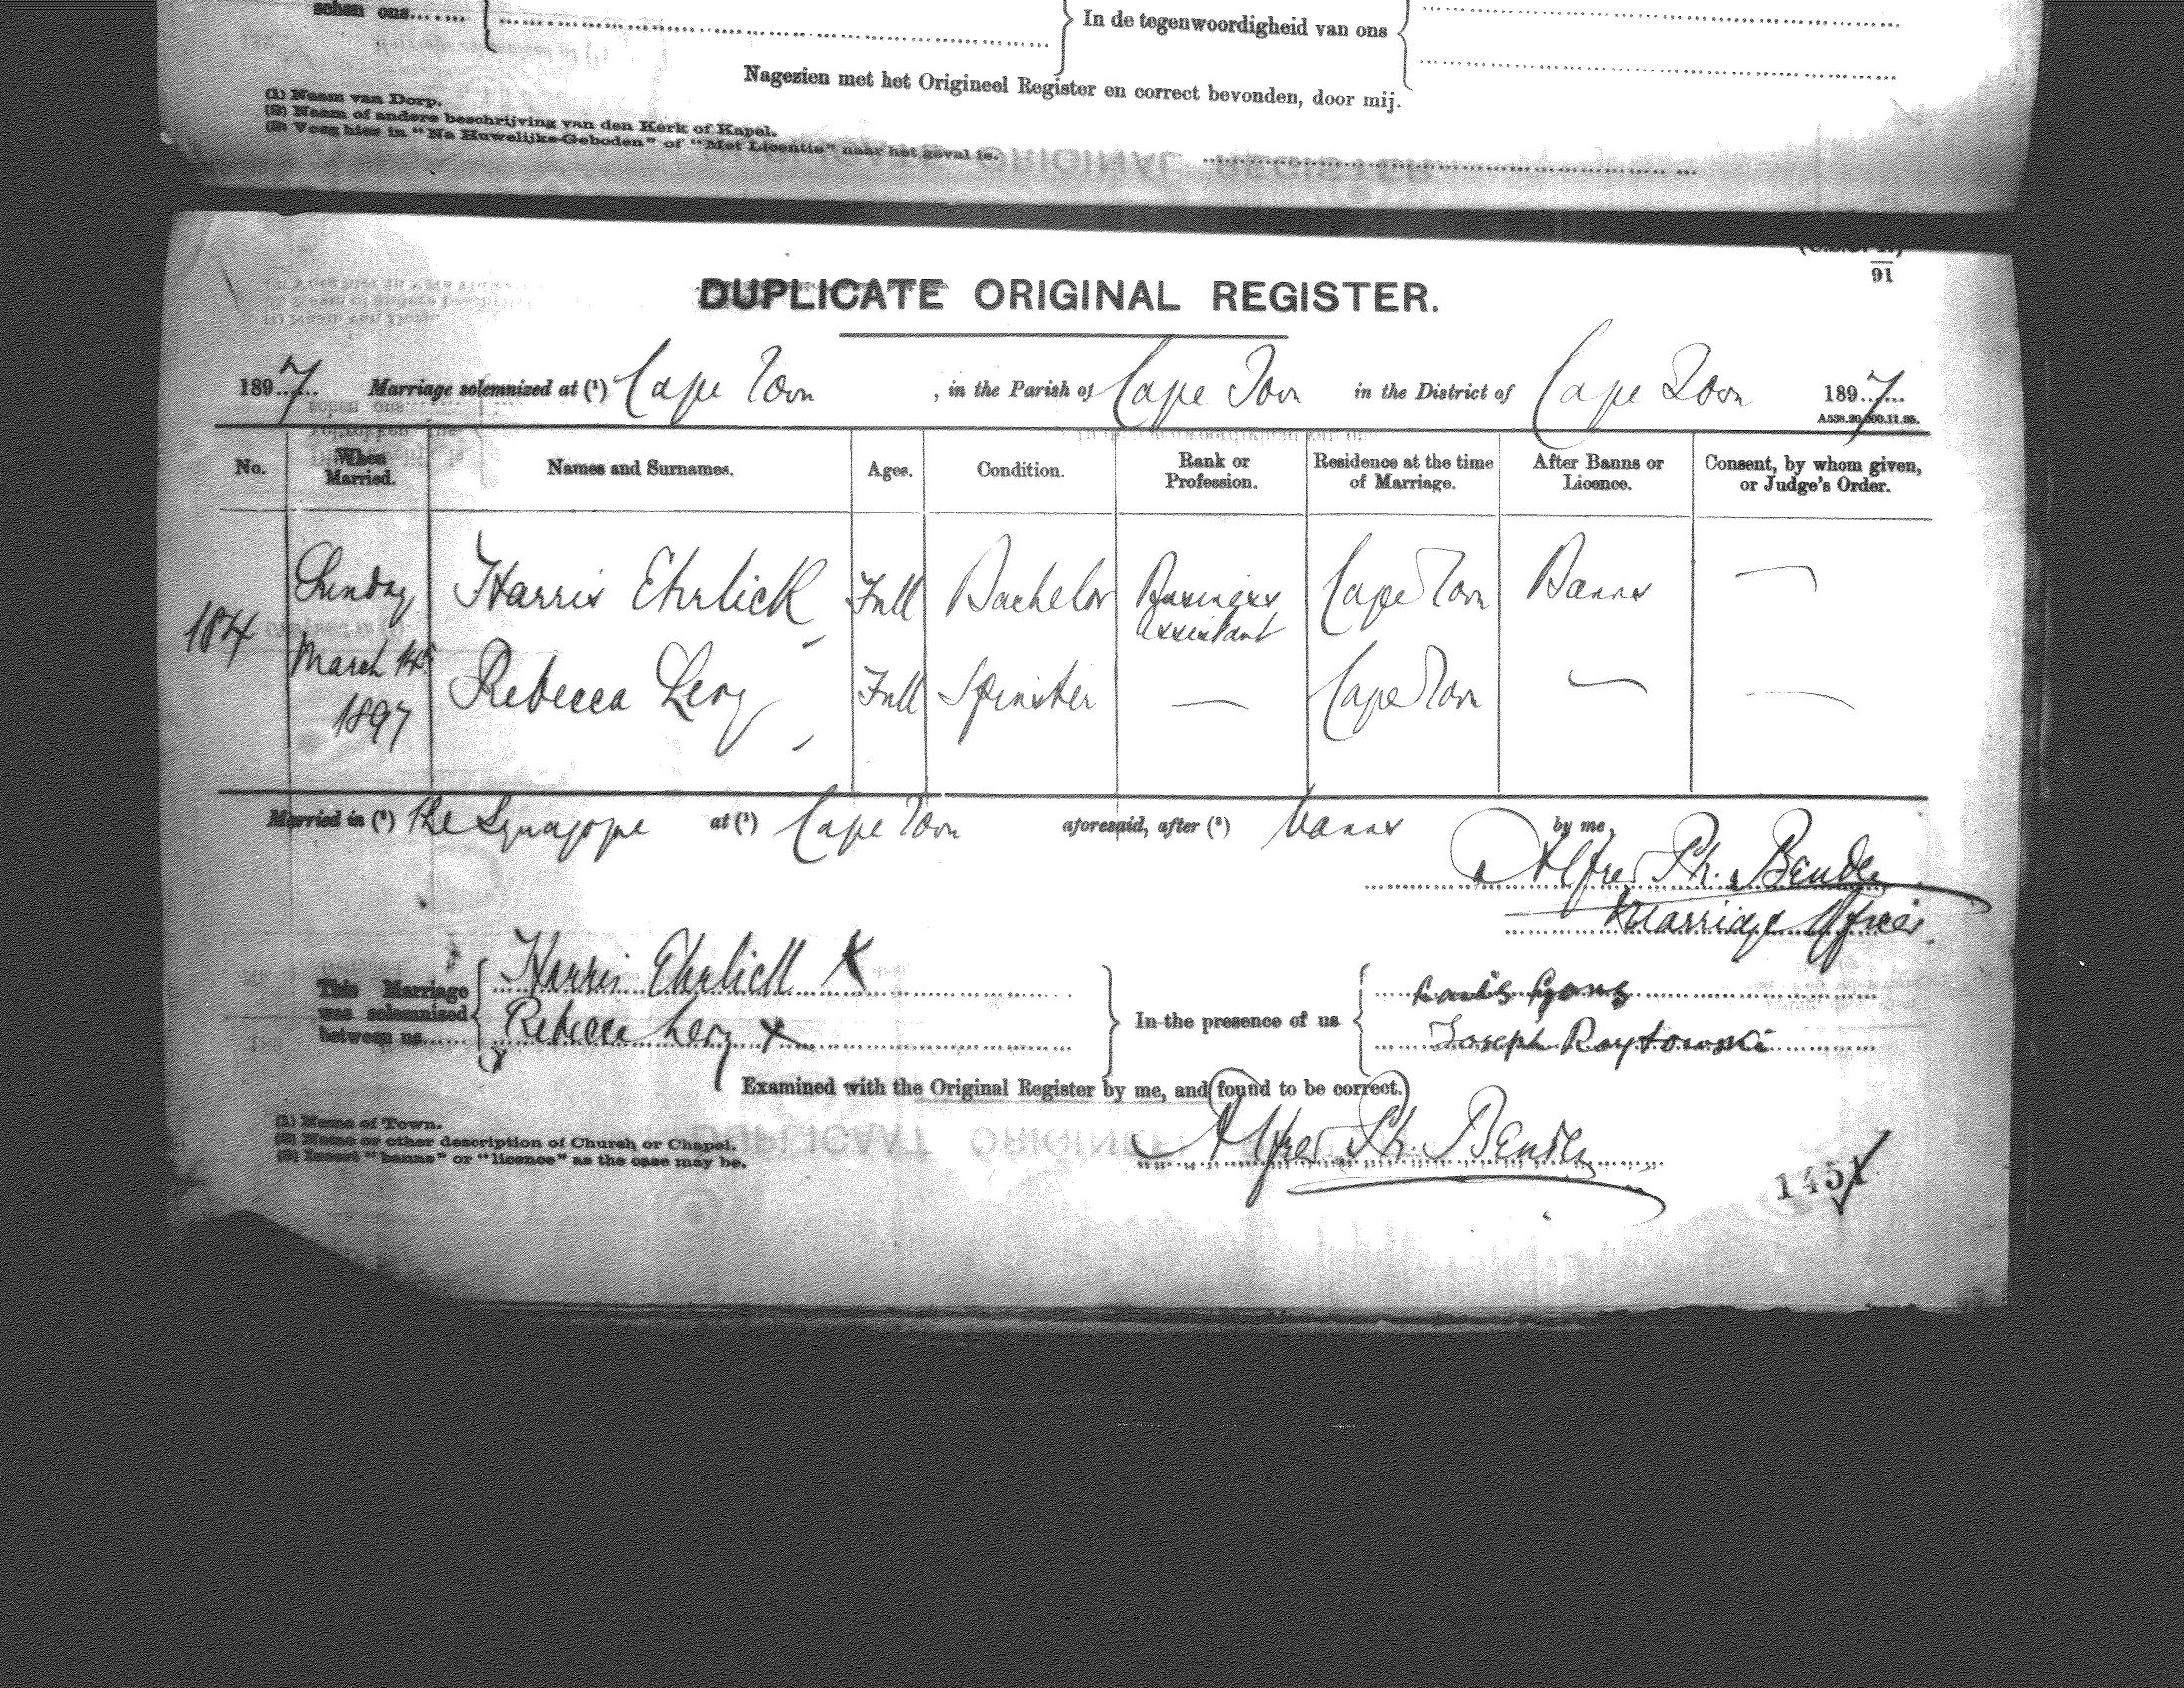 schen ons....... In de tegenwoordigheid van ons
Nagezien met het Origineel Register en correct bevonden, door mij.
(1) Naam van Dorp.
(2) Naam of andere beschrijving van den Kerk of Kapel.
(3) Voeg hier in "Na Huwelijks-Geboden" of "Met Licentie" naar het geval is.
91
DUPLICATE ORIGINAL REGISTER.
1897 Marriage solemnized at (1) Cape Town, in the Parish of Cape Town in the District of Cape Town 1897
No. When Married. Names and Surnames. Ages. Condition. Rank or Profession. Residence at the time of Marriage. After Banns or Licence. Consent, by whom given, or Judge's Order.
184 Sunday March 14th 1897
Harris Ehrlich Full Bachelor Business Assistant Cape Town Banns —
Rebecca Levy Full Spinster — Cape Town — —
Married in (2) the Synagogue at (1) Cape Town aforesaid, after (3) banns by me,
Alfred Ph. Bender
Marriage Officer.
This Marriage was solemnized between us...... Harris Ehrlich X
Rebecca Levy X
In the presence of us
Joseph Raytowski
Examined with the Original Register by me, and found to be correct.
Alfred Ph. Bender
(1) Name of Town.
(2) Name or other description of Church or Chapel.
(3) Insert "banns" or "licence" as the case may be.
1451